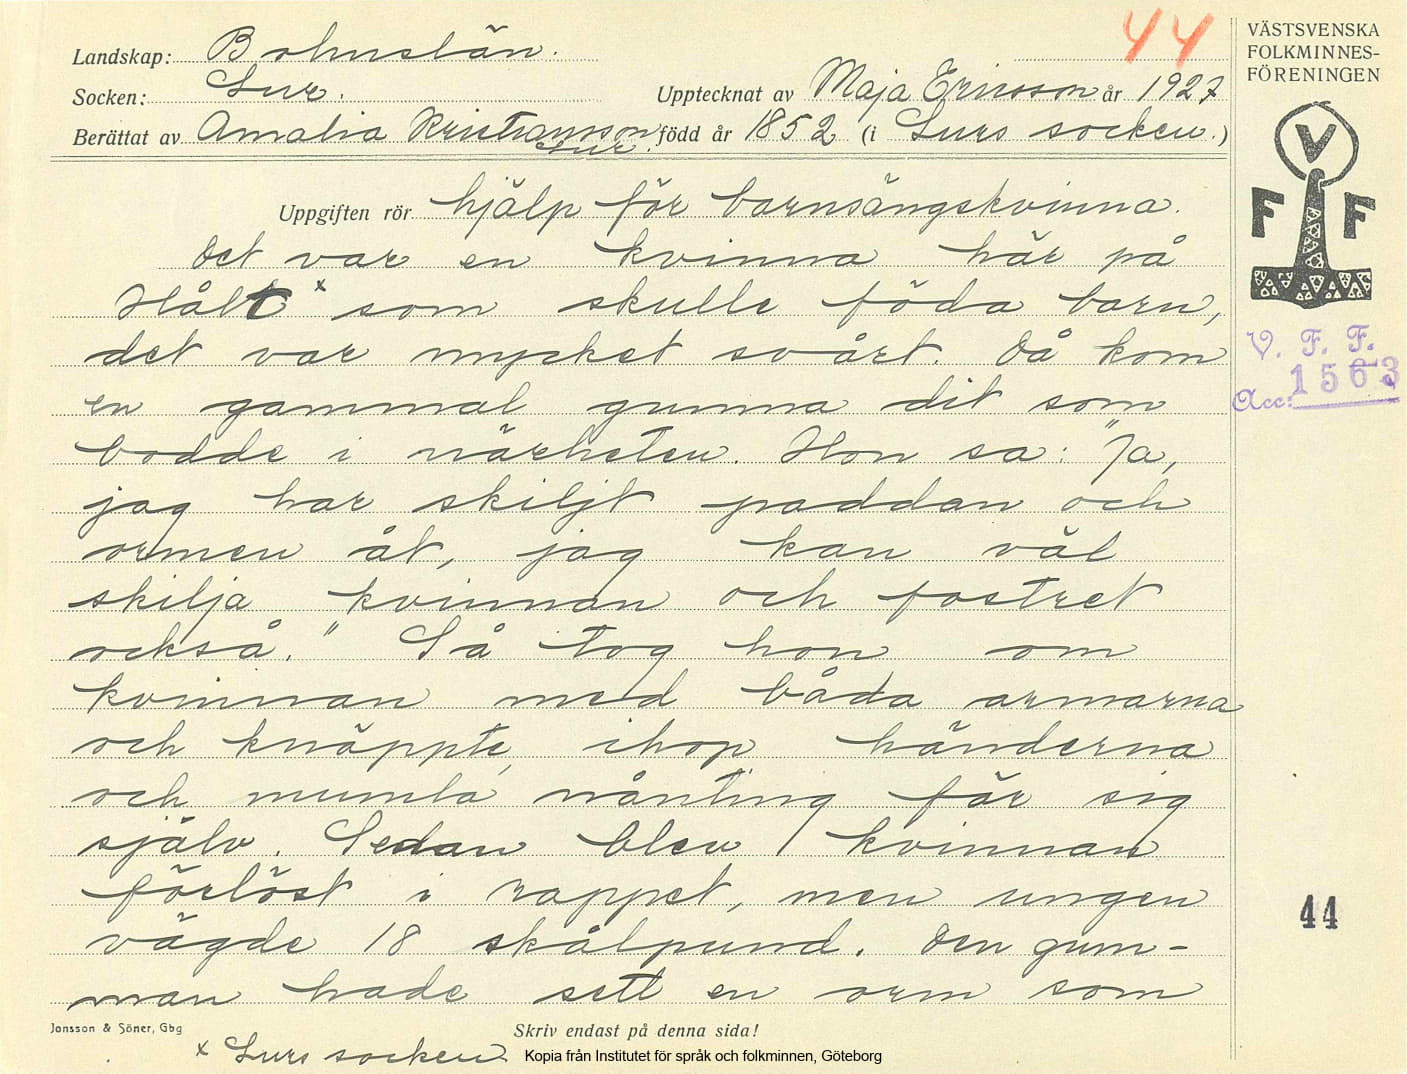 44
VÄSTSVENSKA
FOLKMINNES-
FÖRENINGEN
Landskap: Bohuslän.
Socken: Lur.
Upptecknat av Maja Ericsson år 1927
Berättat av Amalia Kristiansson, Lur. född år 1852 (i Lurs socken.)
V
F F
Uppgiften rör hjälp för barnsängskvinna.
Det var en kvinna här på
Hålt x som skulle föda barn,
det var mycket svårt. Då kom
en gammal gumma dit som
bodde i närheten. Hon sa: "Ja,
jag har skiljt paddan och
ormen åt, jag kan väl
skilja kvinnan och fostret
också." Så tog hon om
kvinnan med båda armarna
och knäppte ihop händerna
och mumla nånting för sig
själv. Sedan blev kvinnan
förlöst i rappet, men ungen
vägde 18 skålpund. Den gum-
man hade sett en orm som
V. F. F.
Acc: 1563
44
Jonsson & Söner, Gbg
Skriv endast på denna sida!
x Lurs socken
Kopia från Institutet för språk och folkminnen, Göteborg